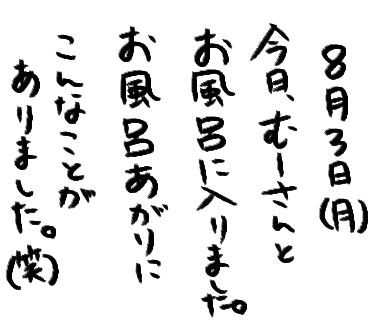 8月3日(月)
今日、むーさんと
お風呂に入りました。
お風呂あがりに
こんなことが
ありました。(笑)